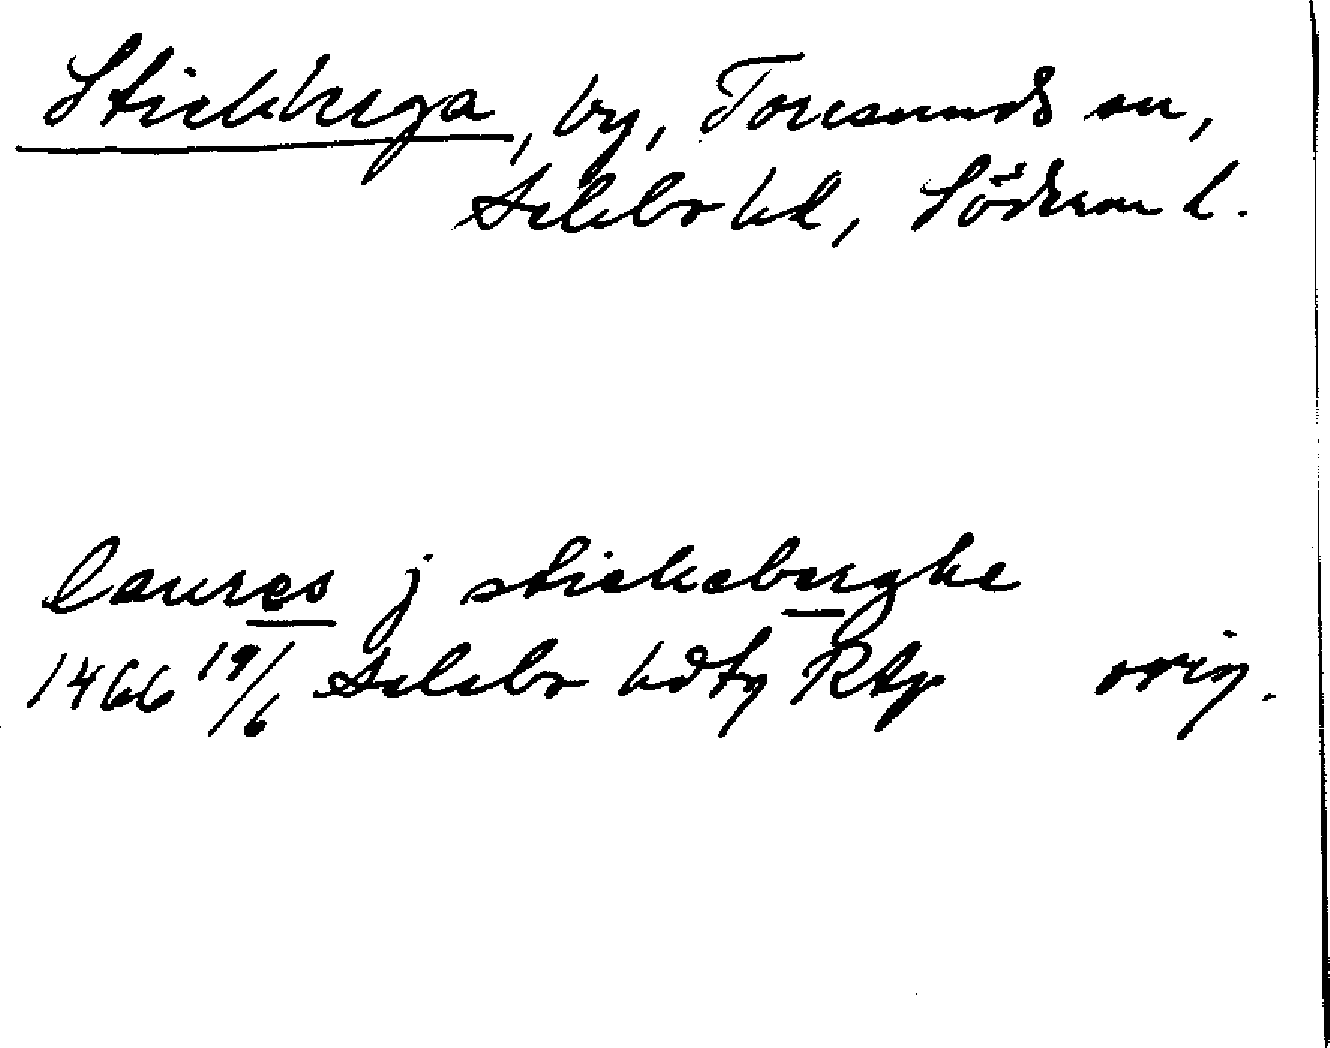 Stickberga, by, Toresunds sn,
Selebo hd, Söderm l.
laures j stickaberghe
1466 19/6 Selebo hdtg RAp orig.